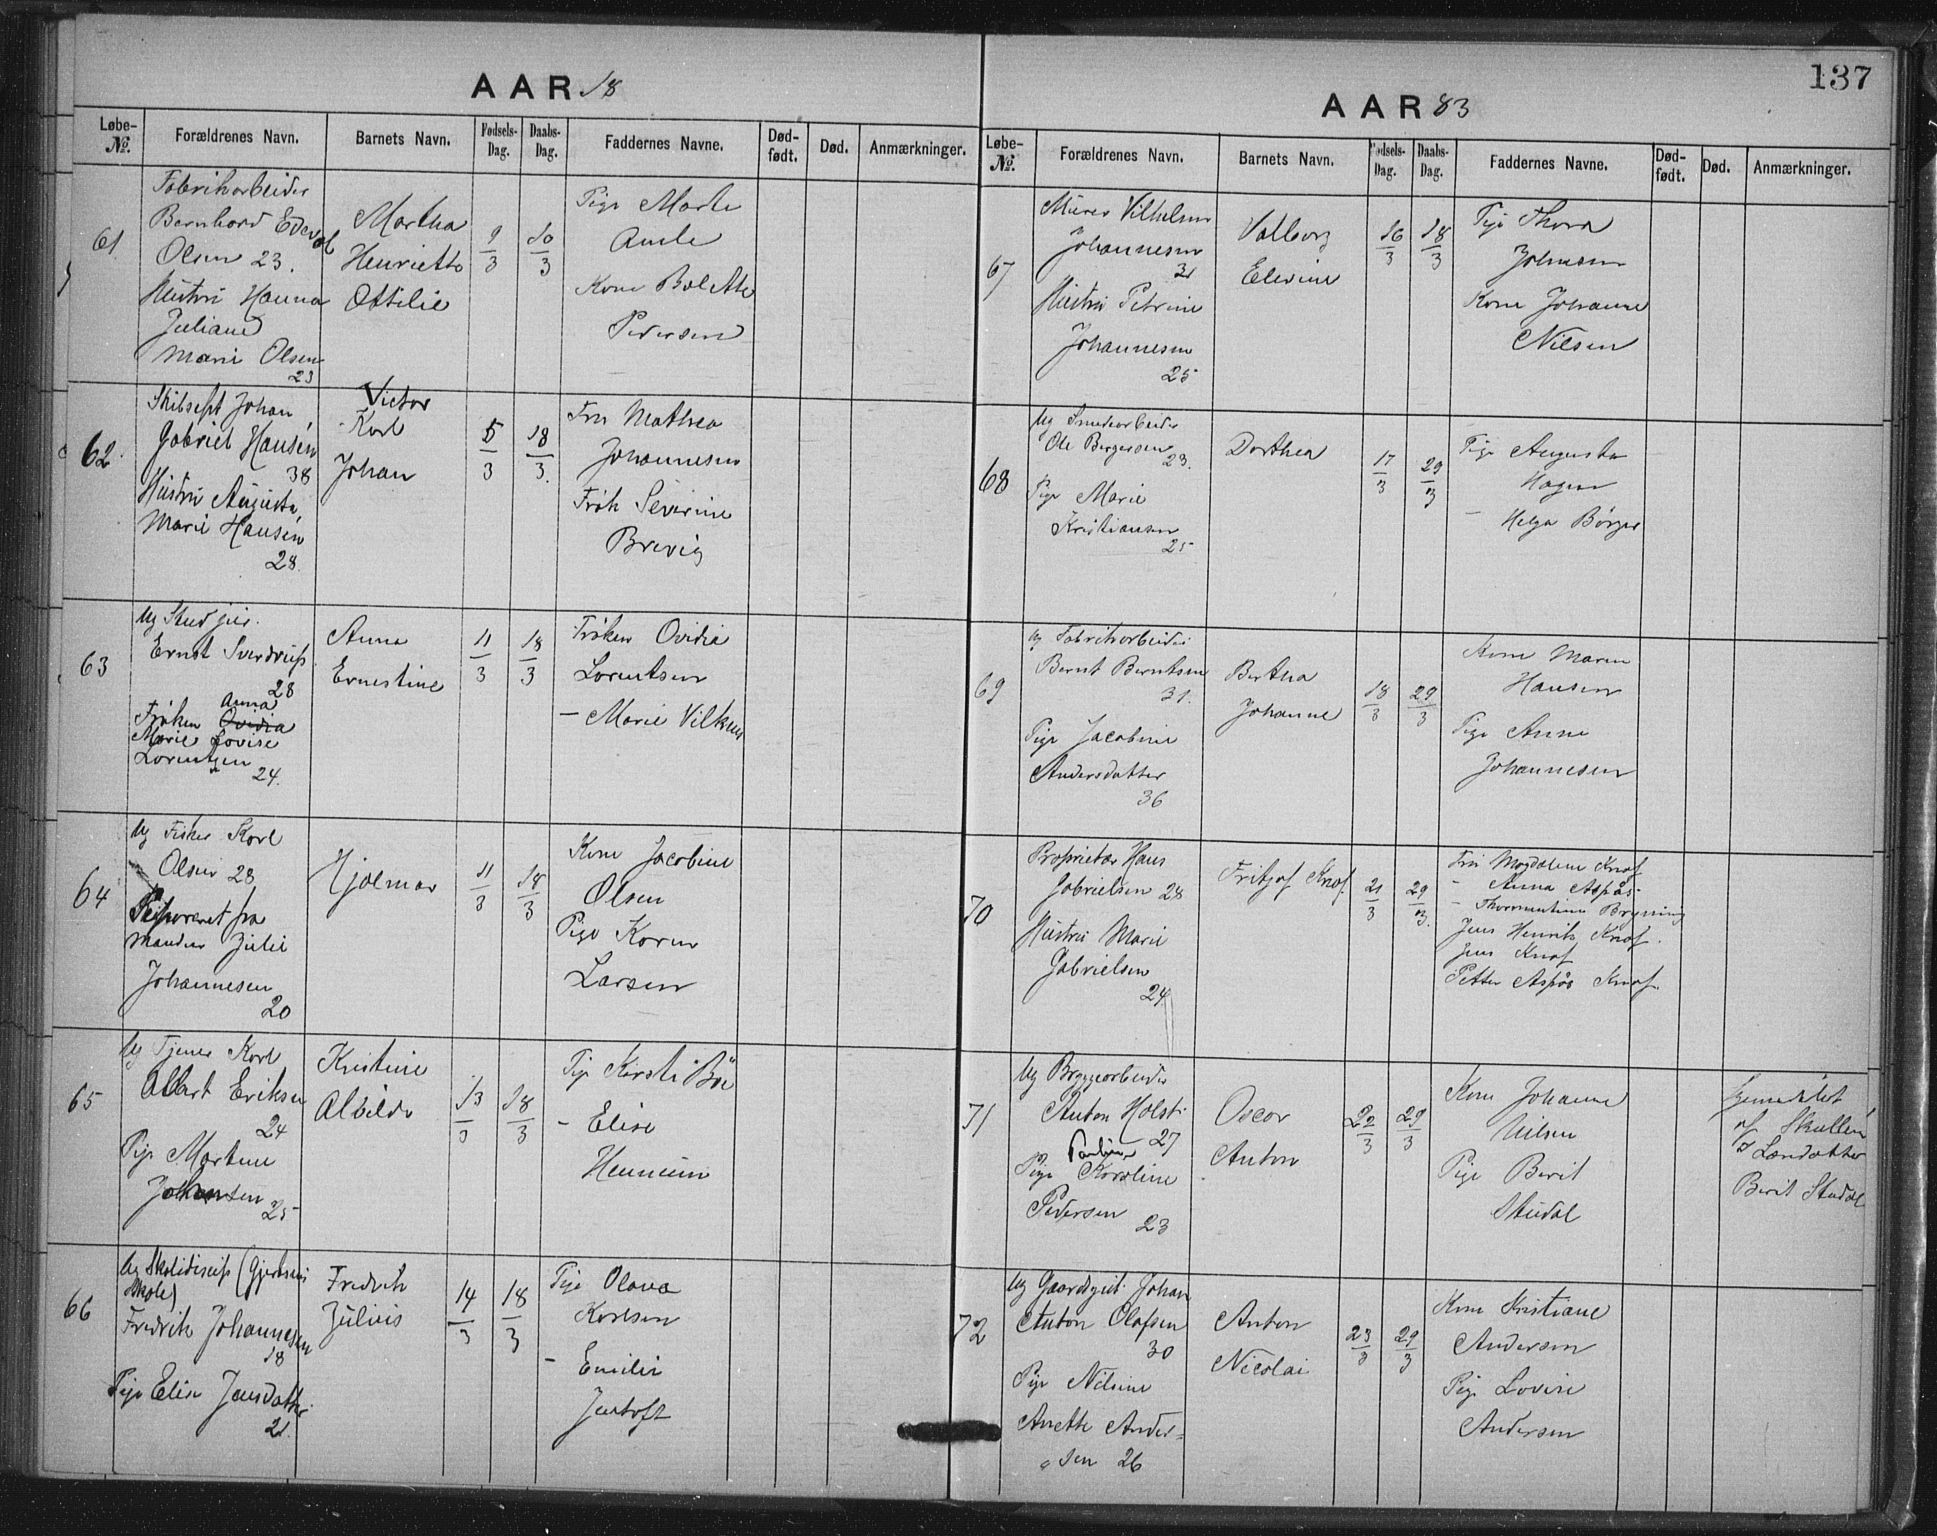 AAR 18
Løbe-№.
Forældrenes Navn.
Barnets Navn.
Fødsels-Dag.
Daabs-Dag.
Faddernes Navne.
Død-født.
Død.
Anmærkninger.
61
Fabrikarbeider
Bernhard Edevol
Olsen 23.
Hustru Hanna
Juliane
Marie Olsen
23
Martha
Henriette
Ottilie
9/3
10/3
Pige Marte
Kone Bolette
Pedersen
62
Skibsept Johan
Gabriel Hansen
38
Hustru Augusta
Marie Hansen
28.
Victor
Karl
Johan
5/3
18/3.
Fru Mathea
Johannesen
Frøk Severine
Brevig
63
Ug Stud jur.
Ernst Sverdrup
28
Anna
Frøken Ovidia
Marie Lovise
Lorentzen
24.
Anna
Ernestine
11/3
18/3
Frøken Ovidia
Lorentsen
— Marie Vilkens
64
Ug Fisker Karl
Olsen 28
Separeret fra
Manden Julie
Johannesen
20
Hjalmar
11/3
18/3
Kone Jacobine
Olsen
Pige Karen
Larsen
65
Ug Tjener Karl
Albert Eriksen
24
Pige Martine
Johansen
25
Kristine
Albilda
13/3
18/3
Pige Kirsti Böe
— Elise
66
Ug Skolediscip (Gjertsens
Skole)
Fredrik Johannesen
18
Pige Elise Jensdatter
21
Fredrik
Julius
14/3
18/3
Pige Olava
Karlsen
— Emilie
Jentoft
137
AAR 83
Løbe-№.
Forældrenes Navn.
Barnets Navn.
Fødsels-Dag.
Daabs-Dag.
Faddernes Navne.
Død-født.
Død.
Anmærkninger.
67
Murer Vilhelm
Johannesen
31
Hustru Petrine
Johannesen
25
Valborg
Elevine
16/3
18/3
Pige Thora
Johnsen
Kone Johanne
Nilsen
68
Ug Smedearbeider
Ole Bergersen
23.
Pige Marie
Kristiansen
25
Dorthea
17/3
29/3
Pige Augusta
Hagen
— Helga Börger
69
Ug Fabrikarbeider
Bernt Berntsen
31.
Pige Jacobine
Andersdatter
36
Bertha
Johanne
18/3
29/3
Kone Maren
Hansen
Pige Anne
Johannesen
70
Proprietær Hans
Gabrielsen 28
Hustru Marie
Gabrielsen
24
Fritjof Knof
21/3
29/3.
Fru Magdalene Knof
— Anna Aspås
— Thormentine Bryning
Jens Henrik Knof.
Jens Knof
Petter Aspås Knof.
71
Ug Bryggearbeider
Anton Holst
27
Pauline
Pige Karoline
Pedersen 23
Oscar
Anton
22/3
29/3
Kone Johanne
Nilsen
Pige Berit
Studal
Hjemmedöbt
af Skullen
Berit Studal
72
Ug Gaardgut Johan
Anton Olafsen
30
Pige Nilsine
Anette Ander-
sen 26
Anton
Nicolai
23/3
29/3
Kone Kristiane
Andersen
Pige Lovise
Andersen